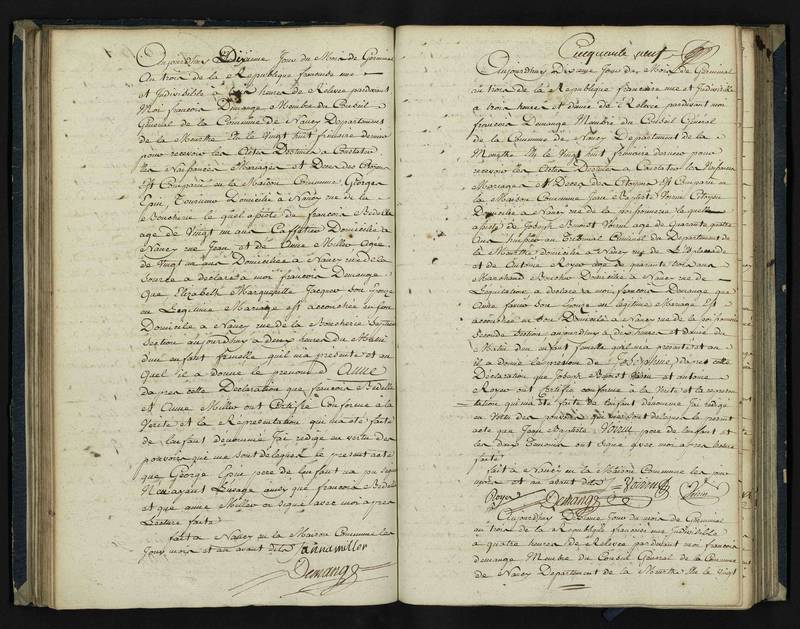 Aujourdhuy Dixieme Jour du Mois de Germinal
An trois de la Republique francaise une
et Indivisible à heures de Relevee pardevant
Moi francois Demange Membre du Conseil
General de la Commune de Nancy Departement
de la Meurthe Elu le vingt huit frimaire dernier
pour recevoir les Actes Destinés a Constater
les Naissances Mariages et Deces des Citoyens
Est Comparu en la Maison Commune George
Epin Domicilié a Nancy rue de la
Boucherie le quel assisté de francois Bedelle
age de vingt un ans Domicilié a
Nancy rue Jean et de Anne Miller Agée
de vingt un ans Domiciliée a Nancy rue de la
Source a declaré a moi francois Demange
Que Elizabeth Marguerite Jacques son Epouse
en Legitime Mariage est accouchée en son
Domicile a Nancy rue de la Boucherie
Section aujourdhuy a deux heures du Matin
d'un enfant femelle quil m'a presenté et au
quel il a donné le prenom d'Anne
dapres cette Declaration que francois Bedelle
et Anne Miller ont Certifié Conforme à la
Verité et la Representation qui m'a été faite
de l'enfant denommé Jai redigé en vertu des
pouvoirs qui me sont delegués le present acte
que George Epin pere de l'enfant na pu signer
N'en ayant l'usage ainsy que francois Bedelle
et que anne Miller a signé avec moi apres
Lecture faite
fait a Nancy en la Maison Commune les
Jour mois et an avant dits anna miller
Demange
Cinquante neuf
Aujourdhuy Dixieme Jour du Mois de Germinal
an trois de la Republique francaise une et Indivisible
a trois heures et demie de Relevee pardevant moi
francois Demange Membre du Conseil General
de la Commune de Nancy Departement de la
Meurthe Elu le vingt huit frimaire dernier pour
recevoir les Actes Destinés a Constater les Naissances
Mariages et Deces des Citoyens Est Comparu en
la Maison Commune Jean Baptiste Citoyen
Domicilié a Nancy rue de la poissonnerie lequel
assisté de Joseph Benoist age de Quarante quatre
Ans huissier au Tribunal Criminel du Departement de
la Meurthe domicilié a Nancy rue de
et de Antoine Royer age de quarante ans
Marchand Domicilié a Nancy rue de
a declaré a moi francois Demange que
Anne son Epouse en legitime Mariage Est
accouchée en son Domicile a Nancy rue de la poissonnerie
Seconde Section aujourdhuy a dix heures et demie du
Matin d'un enfant femelle quil m'a presenté et au
il a donné le prenom de Josephine, dapres cette
Declaration que Joseph Benoist et antoine
Royer ont Certifié conforme a la Verité et la represen
tation qui m'a été faite de l'enfant denommé Jai redigé
en Vertu des pouvoirs qui me sont delegués le present
acte que Jean Baptiste pere de l'enfant et
les deux Temoins ont signé avec moi apres lecture
faite
fait a Nancy en la Maison Commune les jour
mois et an avant dits
Royer Demange
Aujourdhuy Dixieme Jour du mois de Germinal
an trois de la Republique francaise une Indivisible
a quatre heures de Relevee pardevant moi francois
demange Membre du Conseil General de la Commune
de Nancy Departement de la Meurthe Elu le vingt